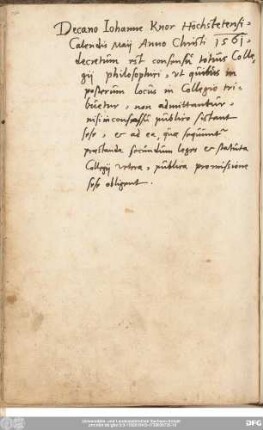 Decano Iohanne Knor Hochstetensi
Calendis Maij Anno Christi 1561.
decretum est consensu totius Colle-
gij philosophici, vt quibus in
posterum locus in Collegio tri-
buetur, non admittantur,
nisi in consessu publico sistant
sese, et ad ea, quæ sequuntur
præstanda secundum leges et statuta
Collegij vetera, publica promissione
sese obligent.